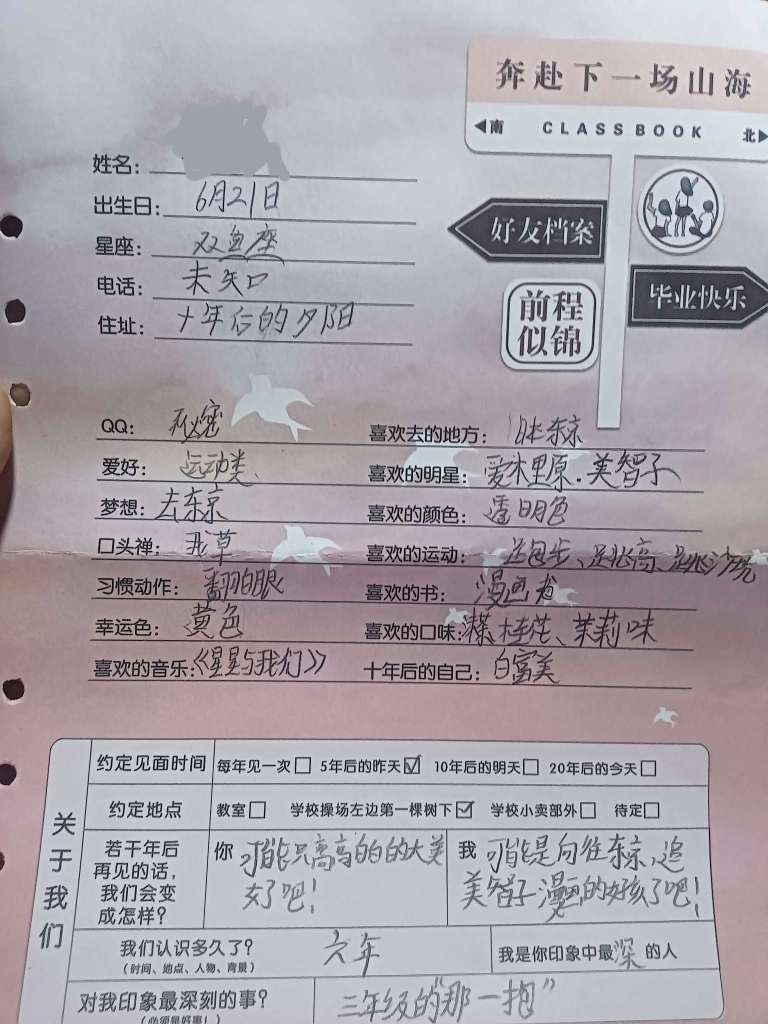 奔赴下一场山海
◀南 CLASS BOOK 北▶
好友档案
毕业快乐
前程
似锦
姓名：
出生日： 6月21日
星座： 双鱼座
电话： 未知
住址： 十年后的夕阳
QQ： 秘密 喜欢去的地方： 日本东京
爱好： 运动类 喜欢的明星： 美智子
梦想： 去东京 喜欢的颜色： 透明色
口头禅： 我草 喜欢的运动： 跑步、跳高、跳沙坑
习惯动作： 翻白眼 喜欢的书： 漫画书
幸运色： 黄色 喜欢的口味： 桂花、茉莉味
喜欢的音乐：《星星与我们》 十年后的自己： 白富美
关于我们
约定见面时间 每年见一次□ 5年后的昨天☑ 10年后的明天□ 20年后的今天□
约定地点 教室□ 学校操场左边第一棵树下☑ 学校小卖部外□ 待定□
若干年后
再见的话，
我们会变
成怎样？
你 可能只高高的的大美
女了吧！
我 可能是向往东京，追
美智子漫画的好孩了吧！
我们认识多久了？ 六年 我是你印象中最深的人
（时间、地点、人物、背景）
对我印象最深刻的事？ 三年级的“那一抱”
（必须是好事！）